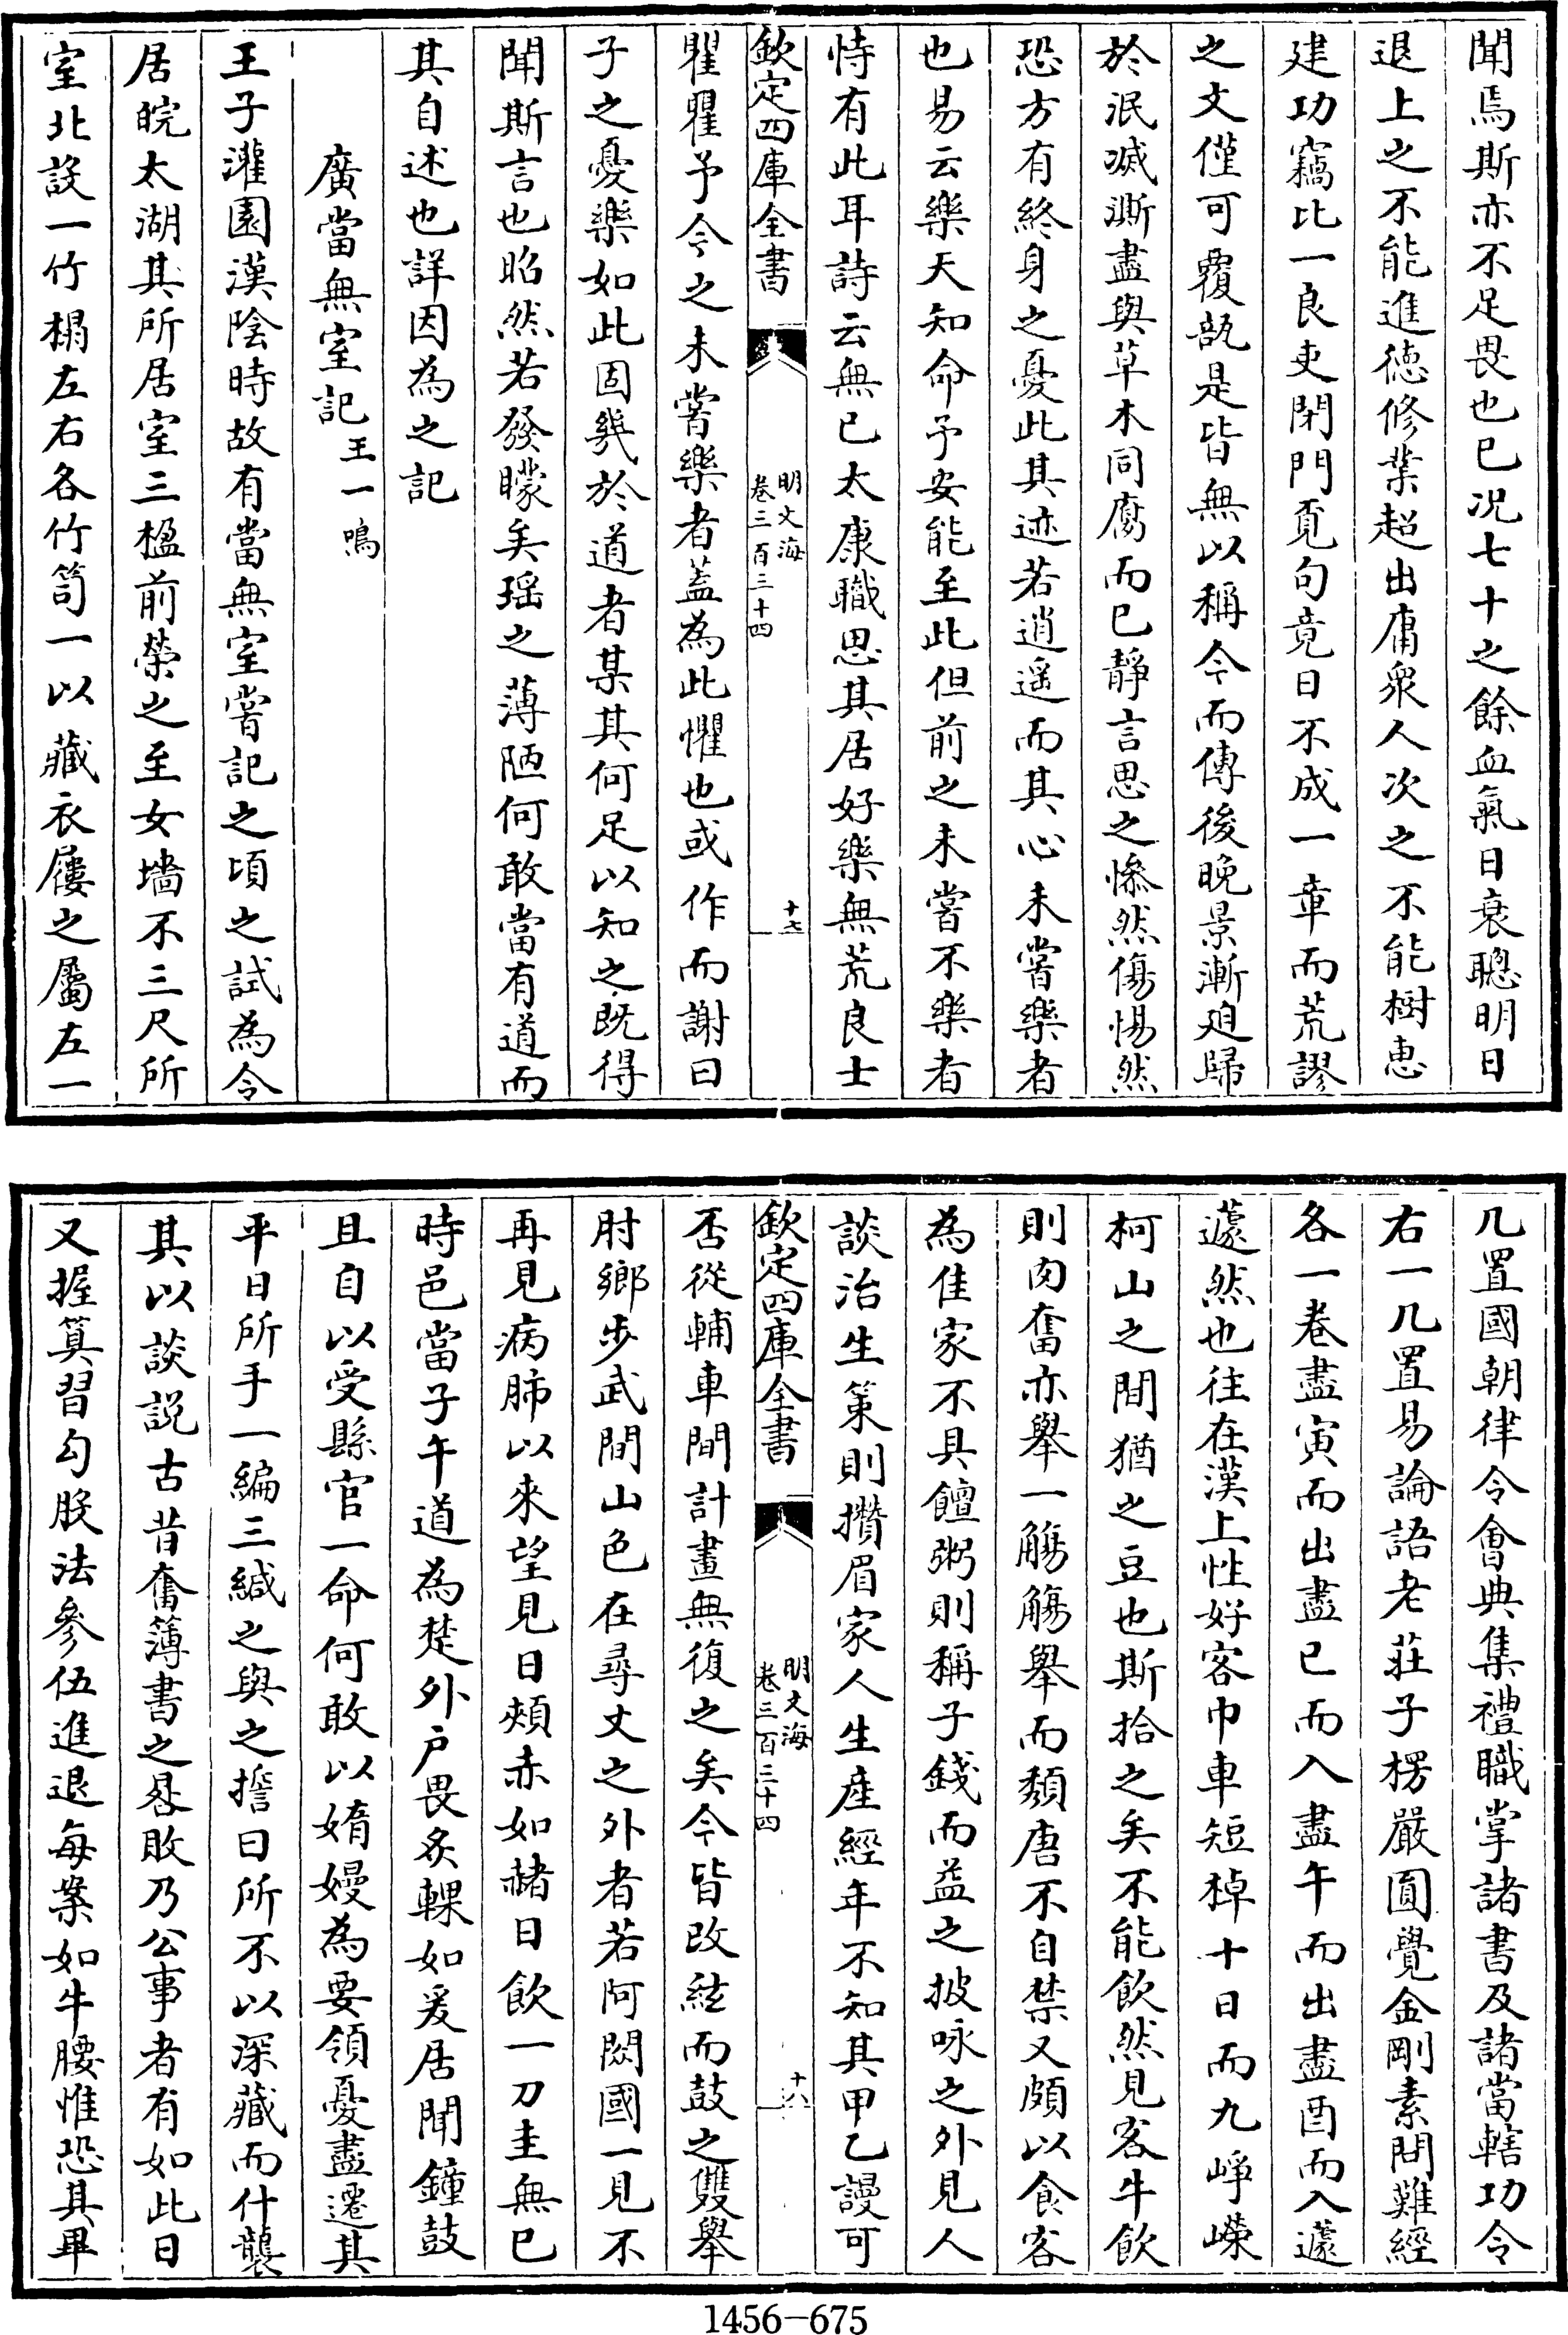 聞焉斯亦不足畏也已况七十之餘血氣日衰聰明日
退上之不能進徳修業超出庸衆人次之不能樹恵
建功竊比一良吏閉門覓句竟日不成一章而荒謬
之文僅可覆瓿是皆無以稱今而傳後晚景漸廹歸
於泯滅澌盡與草木同腐而已靜言思之惨然傷惕然
恐方有終身之憂此其迹若逍遥而其心未嘗樂者
也易云樂天知命予安能至此但前之未嘗不樂者
恃有此耳詩云無已太康職思其居好樂無荒良士
欽定四庫全書
明文海
卷三百三十四
十七
瞿瞿予今之未嘗樂者蓋為此懼也或作而謝曰
子之憂樂如此固幾於道者某其何足以知之既得
聞斯言也昭然若發矇矣瑶之薄陋何敢當有道而
其自述也詳因為之記
廣當無室記王一鳴
王子灌園漢陰時故有當無室嘗記之頃之試為令
居皖太湖其所居室三楹前榮之至女墻不三尺所
室北設一竹榻左右各竹笥一以藏衣屨之屬左一
几置國朝律令會典集禮職掌諸書及諸當轄功令
右一几置易論語老莊子楞嚴圓覺金剛素問難經
各一卷盡寅而出盡已而入盡午而出盡酉而入遽
遽然也往在漢上性好客巾車短棹十日而九崢嶸
柯山之間猶之豆也斯拾之矣不能飲然見客牛飲
則肉奮亦舉一觴觴舉而頽唐不自禁又頗以食客
為佳家不具饘粥則稱子錢而益之披咏之外見人
談治生策則攢眉家人生産經年不知其甲乙謾可
欽定四庫全書
明文海
卷三百三十四
十八
否從輔車間計畫無復之矣今皆改絃而鼓之雙舉
肘鄉步武間山色在尋丈之外者若阿閦國一見不
再見病肺以來望見日頰赤如赭日飲一刀圭無已
時邑當子午道為楚外户畏炙輠如爰居聞鐘鼓
且自以受縣官一命何敢以媠嫚為要領憂盡遷其
平日所手一編三緘之與之擔曰所不以深藏而什襲
其以談説古昔奮簿書之畧敗乃公事者有如此日
又握算習勾股法參伍進退每案如牛腰惟恐其畢
1456-675